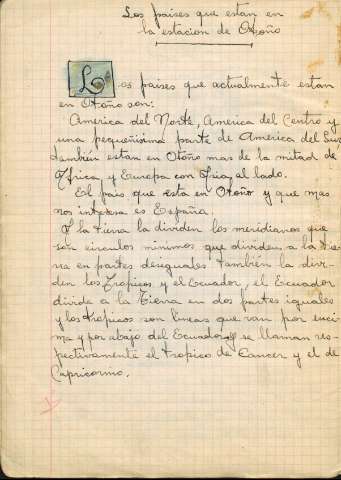 Los paises que estan en
la estacion de Otoño
Los paises que actualmente estan
en Otoño son:
America del Norte, America del Centro y
una pequeñisima parte de America del Sur
tambien estan en Otoño mas de la mitad de
Africa, y Europa con Asia, al lado.
El pais que esta en Otoño y que mas
nos interesa es España.
A la tierra la dividen los meridianos que
son circulos minimos que dividen a la tie-
rra en partes desiguales. tambien la divi-
den los Tropicos y el Ecuador, el Ecuador
divide a la Tierra en dos partes iguales
y los tropicos son lineas que van por enci-
ma y por abajo del Ecuador y se llaman res-
pectivamente el tropico de Cancer y el de
Capricornio.